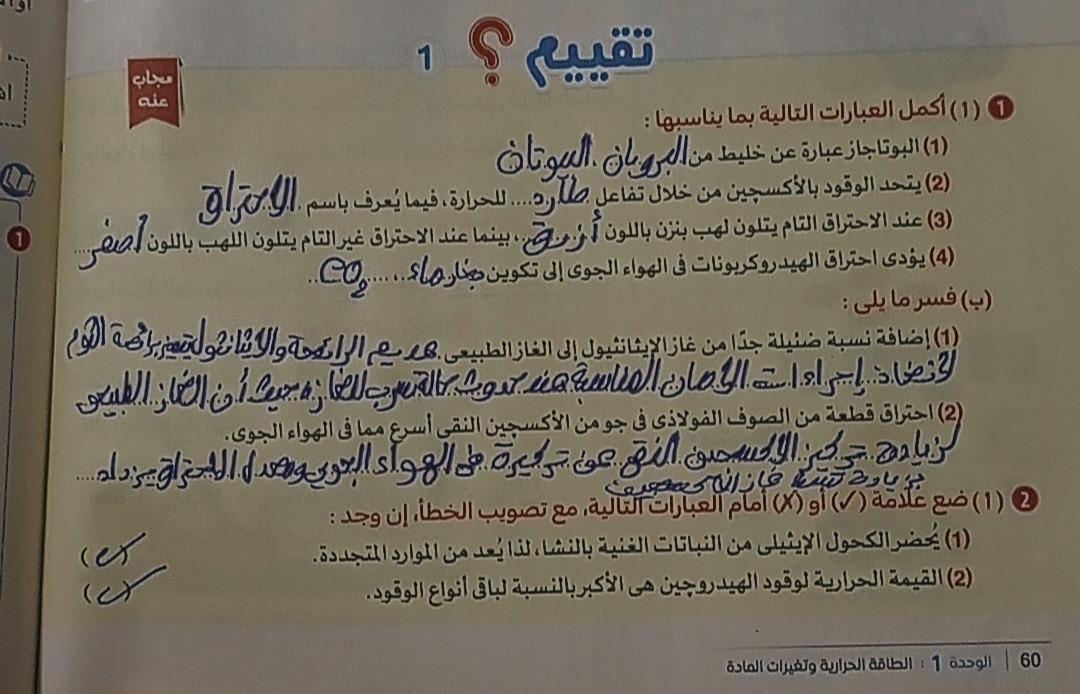 تقييم ؟ 1
مجاب
عنه
1 (١) أكمل العبارات التالية بما يناسبها :
(1) البوتاجاز عبارة عن خليط من البروبان . البيوتان
(2) يتحد الوقود بالأكسچين من خلال تفاعل طارد .... للحرارة، فيما يُعرف باسم . الاحتراق
(3) عند الاحتراق التام يتلون لهب بنزن باللون أزرق .، بينما عند الاحتراق غير التام يتلون اللهب باللون أصفر ....
(4) يؤدى احتراق الهيدروكربونات فى الهواء الجوى إلى تكوين بخار ماء . . . . . . CO₂ . .
(ب) فسر ما يلى :
(1) إضافة نسبة ضئيلة جدًا من غاز الإيثانثيول إلى الغاز الطبيعى . عديم الرائحة والايثانثول برائحة الثوم
لاتخاذ . إجراءات الأمان المناسبة عند حدوث حالة تسرب للغاز . حيث أن الغاز الطبيعى
(2) احتراق قطعة من الصوف الفولاذى فى جو من الأكسچين النقى أسرع مما فى الهواء الجوى.
لزيادة تركيز الاكسجين النقى عن تركيزة فى الهواء الجوى ومعدل الاحتراق يزداد ....
بزيادة
2 (١) ضع علامة (✓) أو (✗) أمام العبارات التالية، مع تصويب الخطأ، إن وجد :
(1) يُحضر الكحول الإيثيلى من النباتات الغنية بالنشا، لذا يُعد من الموارد المتجددة. (✓)
(2) القيمة الحرارية لوقود الهيدروچين هى الأكبر بالنسبة لباقى أنواع الوقود. (✓)
60 | الوحدة 1 : الطاقة الحرارية وتغيرات المادة
1